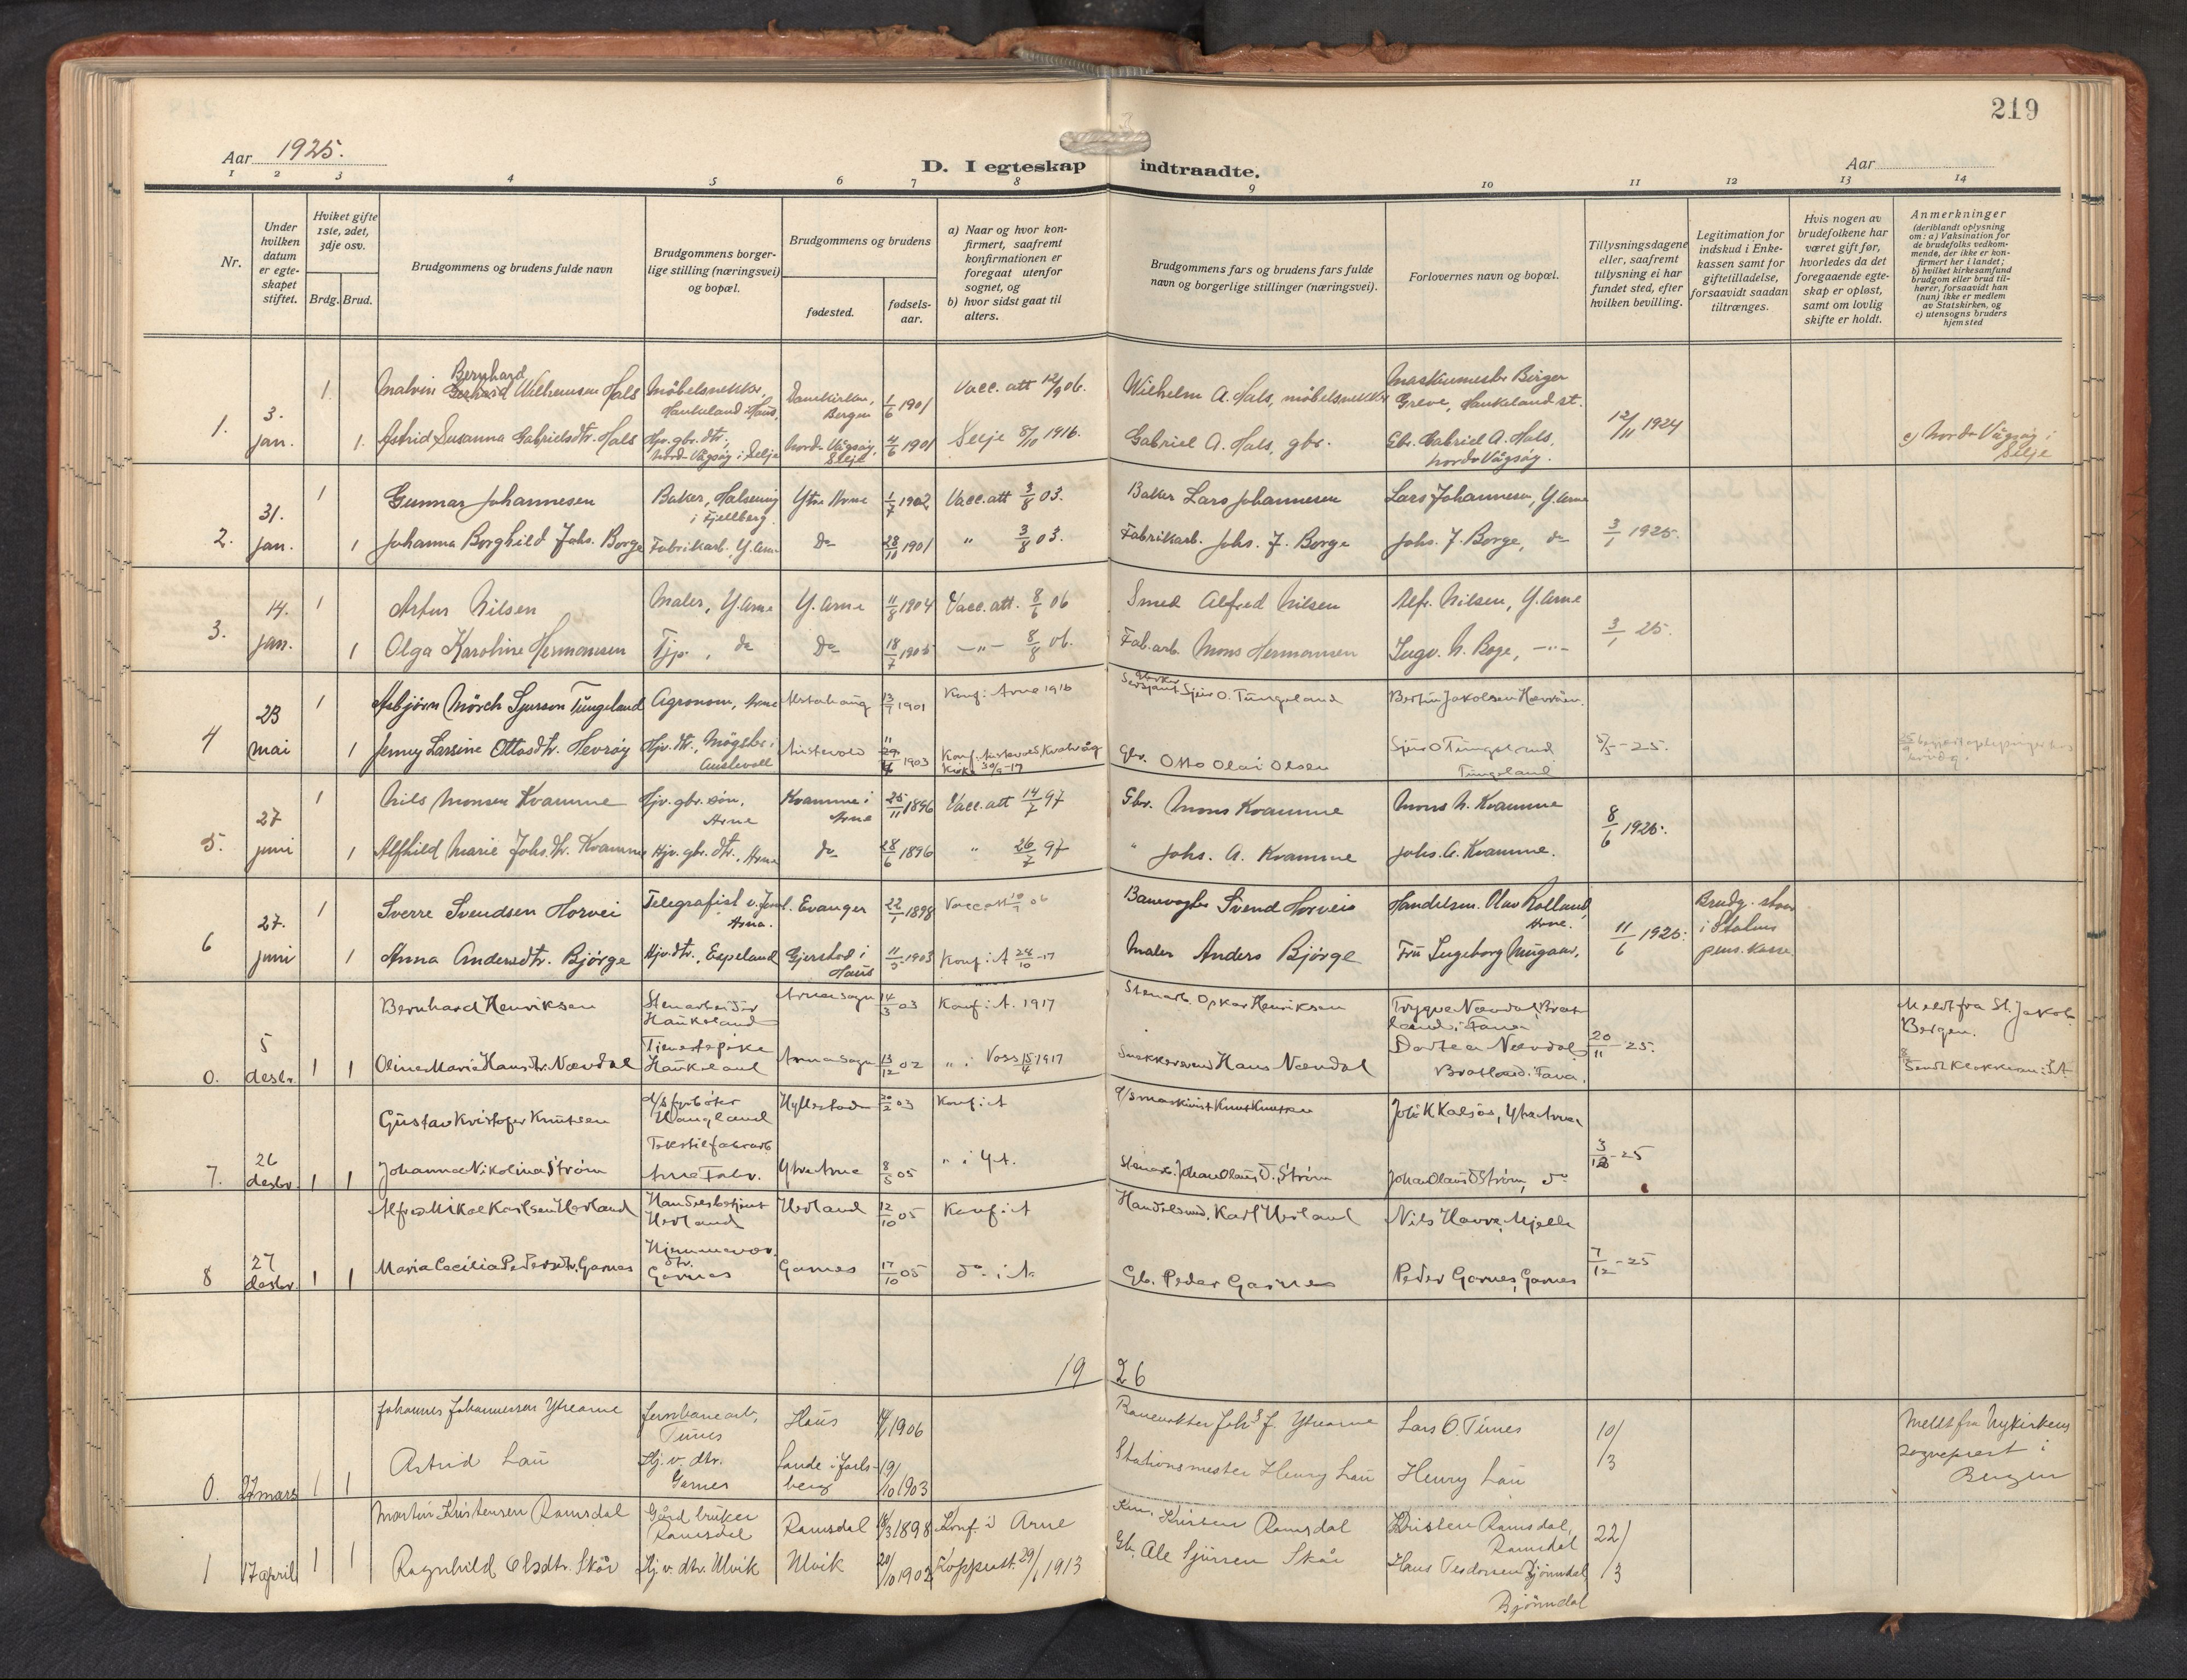 219
Aar 1925.
D. I egteskap indtraadte.
Aar
1 2 3 4 5 6 7 8 9 10 11 12 13 14
Nr.
Under hvilken datum er egteskapet stiftet.
Hvilket gifte 1ste, 2det, 3dje osv.
Brdg. Brud.
Brudgommens og brudens fulde navn
Brudgommens borgerlige stilling (næringsvei) og bopæl.
Brudgommens og brudens
fødested.
fødselsaar.
a) Naar og hvor konfirmert, saafremt konfirmationen er foregaat utenfor sognet, og
b) hvor sidst gaat til alters.
Brudgommens fars og brudens fars fulde navn og borgerlige stillinger (næringsvei).
Forlovernes navn og bopæl.
Tillysningsdagene eller, saafremt tillysning ei har fundet sted, efter hvilken bevilling.
Legitimation for indskud i Enkekassen samt for giftetilladelse, forsaavidt saadan tiltrænges.
Hvis nogen av brudefolkene har været gift før, hvorledes da det foregaaende egteskap er opløst, samt om lovlig skifte er holdt.
Anmerkninger (deriblandt oplysning om: a) Vaksination for de brudefolks vedkommende, der ikke er konfirmert her i landet; b) hvilket kirkesamfund brudgom eller brud tilhører, forsaavidt han (hun) ikke er medlem av Statskirken, og c) utensogns bruders hjemsted
1. 3. jan. 1 Malvin Bernhard Wilhemsen Hals Møbelsnekker, Haukeland i Haus, Domkirken, Bergen 1/6 1901 Vacc. att 12/9 06. Wilhelm A. Hals, møbelsnekker Maskinmester Birger Greve, Haukeland st. 12/11 1924
1. Astrid Susanna Gabrielsdtr. Hals Hjv. gbr. dtr., Nordr Vågsøy i Selje Nordr Vågsøy, Selje 4/6 1901 Selje 8/10 1916. Gabriel A. Hals, gbr. Gbr. Gabriel A. Hals, Nordr Vågsøy. c) Nordr Vågsøy i Selje
2. 31. jan. 1 Gunnar Johannesen Baker, Halsenøy i Fjellberg. Ytre Arne 1/7 1902 Vacc. att 3/8 03. Baker Lars Johannesen Lars Johannesen, Y. Arne 3/1 1925.
1 Johanna Borghild Johs. Borge Fabrikarb., Y. Arne Do 28/11 1901 " 3/8 03. Fabrikarb. Johs. J. Borge Johs. J. Borge, do
3. 14. jan. 1 Artur Nilsen Maler, Y. Arne Y. Arne 11/8 1904 Vacc. att. 8/6 06 Smed Alfred Nilsen Alfr. Nilsen, Y. Arne 3/1 25.
1 Olga Karoline Hermansen Tjp., do Do 18/7 1905 -"- 8/8 06. Fab. arb. Mons Hermansen Ingv. N. Boge, -"-
4 23 mai 1 Asbjørn Mörch Sjurson Tungeland Agronom, Arne 13/7 1901 Konf. i Arne 1916 Sersjant Sjur O. Tungeland Bertin Jakobsen
1 Jenny Larsine Ottosdtr. Hevrøy Hjv. dtr., Møgster i Austevoll Austevold 1903 Konf. Austevold, 30/9-17 Gbr. Otto Olai Olsen Sjur O Tungeland Tungeland 5/5-25.
5. 27 juni 1 Nils Monsen Kvamme Hjv. gbr. søn, Arne Kvamme i Arne 25/11 1896 Vacc. att 14/7 97 Gbr. Mons Kvamme Mons N. Kvamme 8/6 1925.
1 Alfhild Marie Johs. dtr. Kvamme Hjv. gbr. dtr., Arne do 28/6 1896 " 26/7 97 " Johs. A. Kvamme Johs. A. Kvamme.
6 27. juni 1 Sverre Svendsen Horvei Telegrafist v. Arna. Evanger 22/1 1898 Vacc att 06 Banevogter Svend Horvei Handelsm. Olav Rolland, Arne. 11/6 1925. Brudg. står i Statens pens. kasse
1 Anna Andersdtr. Bjørge Hjv. dtr., Espeland Gjerstad i Haus 1903 Konf. i A 24/10-17 Maler Anders Bjørge Fru Ingeborg Mugaas.
0. 5 desbr. 1 1 Bernhard Henriksen Stenarbeider Haukeland Arne sogn 14/3 03 Konf. i A. 1917 Stenarb. Oskar Henriksen Trygve Nævdal, Bratland i Fana 20/11-25. Meldt fra St. Jakob Bergen.
Oline Maria Hansdtr. Nævdal Tjenestepike Haukeland Arne sogn 13/12 02 " i Voss 15/4 1917 Snekkersvend Hans Nævdal Dortea Nævdal Bratland i Fana.
7. 26 desbr. 1 1 Gustav Kristofer Knutsen d/s fyrbøter Haugland Hyllestad 20/2 03 Konf. i A d/s maskinist Knut Knutsen Joh. K Kalsås, Ytre Arna 3/12-25
Johanna Nikolina Strøm Tekstilfabrarb Arne Fabr. Ytre Arne 8/5 05 " i Y A. Stenarb. Johan Olaus D. Strøm Johan Olaus D Strøm, do
8 27 desbr. 1 1 Alfred Mikal Karlsen Herland Handelsbetjent Herland Herland 12/10 05 Konf i A Handelsmd. Karl Herland Nils Havre, Mjelde 7/12-25
Maria Cecilia Pedersdtr. Garnes Hjemmevær. dtr. Garnes Garnes 17/10 05 do. i A. Gb. Peder Garnes Peder Garnes, Garnes
1926
0. 27 mars 1 1 Johannes Johannessen Ytrearne Jernbanearb., Tunes Haus 1906 Banevokter Johs J. Ytrearne Lars O. Tunes 10/3 Meldt fra Nykirkens sogneprest i Bergen
Astrid Lau Hj. v. dtr. Garnes Sande i Jarlsberg 19/10 1903 Stationsmester Henry Lau Henry Lau
1 17 april 1 1 Martin Kristensen Ramsdal Gårdbruker Ramsdal Ramsdal 18/3 1898 Konf. i Arne Kristen Ramsdal Kristen Ramsdal, Ramsdal 22/3
Ragnhild Olsdtr. Skår Hj. v. dtr. Ulvik Ulvik 20/10 1902 Koppeatt. 29/1 1913 Gb. Ole Sjursen Skår Hans Bjørndal, Bjørndal